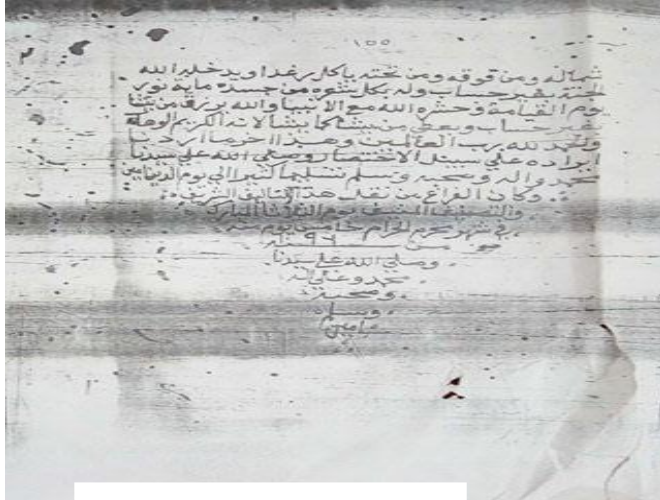 ١٥٥
شماله ومن فوقه ومن تحته ياكل رغدا ويدخله الله
الجنة بغير حساب وله بكل شعره من جسده ماية نور
يوم القيامة وحشره الله مع الانبيا والله يرزق من يشا
بغير حساب ويعطي من يشا كما يشا لانه الكريم الوهاب
والحمد لله رب العالمين وهذا اخر ما اردنا
ايراده علي سبيل الاختصار وصلي الله علي سيدنا
محمد واله وصحبه وسلم تسليما كثيرا الي يوم الدين امين
وكان الفراغ من نقل هذا التاليف الشريف
والتصنيف المنيف يوم الثلاثا المبارك
في شهر محرم الحرام خامس يوم سنه
وصلي الله علي سيدنا
محمد وعلي اله
وصحبه
وسلم
امين